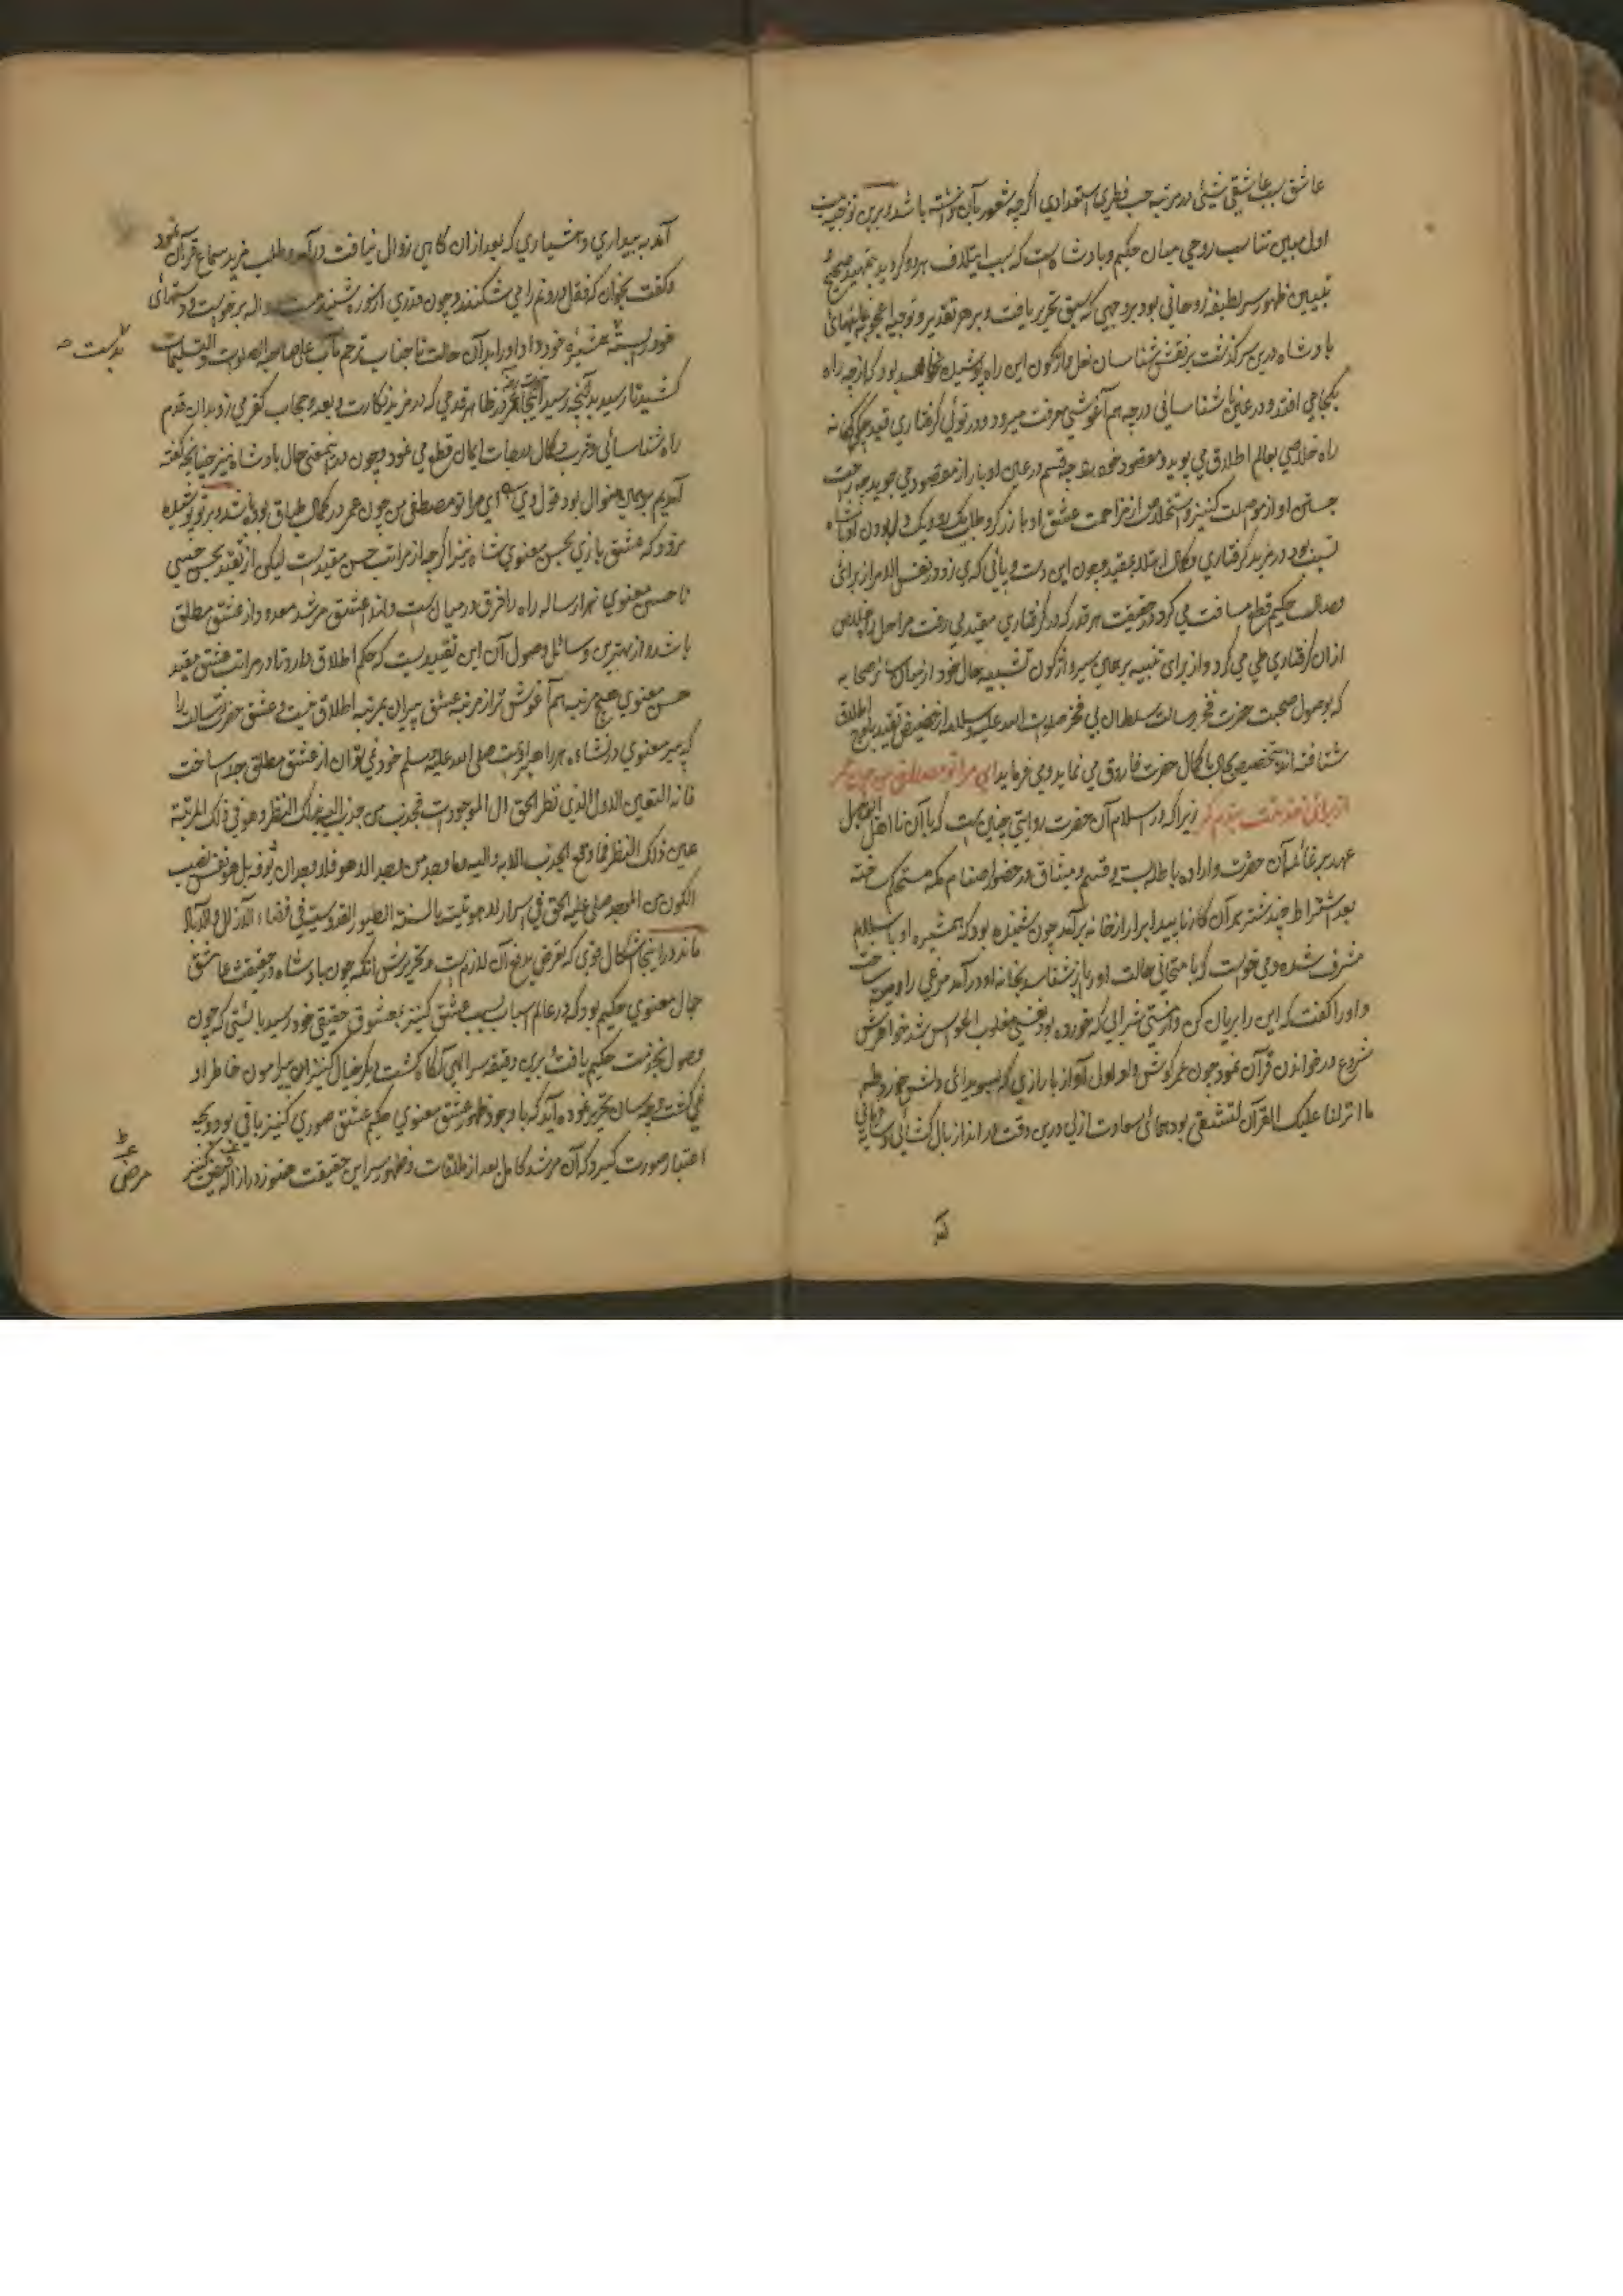 عاشق سبب عاشقی شیئی در مرتبه حب فطری استعدادی اگرچه شعور بآن نداشته باشد و برین توجیه
اول مبین تناسب روحی میان حکیم و بادشاه است که سبب ایتلاف هر دو گردید بتمهید
تبیین ظهور سر لطیفه روحانی بود بر وجهی که سبق تحریر یافت و بر هر تقدیر و توجیه
بادشاه درین سرگذشت بر نقش شناسان نعل واژگون این راه پوشیده نخواهد بود که از چه راه
بکجا می افتد و در عین ناشناسائی درجه هم آغوشی معرفت میرود و در توئی گرفتاری قید
راه خلاصی بعالم اطلاق می پوید و مقصود خود را بچه قسم در عین ادبار از مقصود می جوید چه
جستن او از مواصلت کنیز و استخلاص از مزاحمت عشق او با زرگر و طلب یک رو و یک دل بودن او
نسبت بخود در مزید گرفتاری و کمال ابتلا بقید و چون این دست و پائی که می زد و در نفس الامر از برای
وصال حکیم قطع مسافت می کرد و در حقیقت هر قدر که در گرفتاری مقید می رفت مراحل خلاص
ازان گرفتاری طی می کرد و از برای تنبیه بر همان سیر واژگون تشبیه حال خود از میان سائر صحابه
که بوصول صحبت حضرت فخر رسالت سلطان بی فخر صلوات الله علیه و سلامه از حضیض تقیید باوج اطلاق
شتافته اند بتخصیص بحال با کمال حضرت فاروق می نماید و می فرماید ای مرا تو مصطفی من چون عمر
از برای خدمتت بندم کمر زیرا که در اسلام آن حضرت روایتی چنین است که با آن نا اهل ابو جهل
عهد بر آن حضرت و اراده باطله بست و قسم و میثاق در حضور اصنام مکه مستحکم ساخته
بعد اشتراط چند شتر بر آن کار ناپسید ابرار از خانه برآمد چون شنیده بود که همشیره او باسلام
مشرف شده و می خواست که بامتحانی حالت او را باز شناسد بخانه او درآمد مرغی را
و او را گفت که این را بریان کن و از مستی شرابی که خورده بود نفسی مغلوب الحواس شد خواهرش
شروع در خواندن قرآن نمود چون عمر گوش و او اول آواز با رازی که بسویدای دلش خورد طه
ما انزلنا علیک القرآن لتشقی بود همای سعادت ازلی درین وقت در انداز بال کشائی
آمد
آمد به بیداری و هشیاری که بعد ازان گاهی زوال نیافت درآمد و طلب مزید سماع قرآن نمود
و گفت بخوان که قفل درونم را می شکنند و چون قدری از سوره شنید مست و واله برخواست و دستهای
خود بسته بهمشیره خود داد و او را بدان حالت تا جناب ترجم مآب علی صاحبه الصلوات والتسلیمات
کشید تا رسید بآنچه رسید در ظاهر قدمی که در مزید نکارت و بعد و حجاب کفر می زد بدان قدم
راه شناسائی و قرب و کمال ایمان قطع می نمود و چون حال بادشاه نیز چنانچه گفته
آمدیم برهمین منوال بود قول وی ای مرا تو مصطفی من چون عمر در کمال طباق بوده باشد و بر تو پوشیده
نرود که عشق بازی بحسن معنوی شاه نیز اگرچه از مراتب حسن مقیدست لیکن از تقید بحسن حسی
تا حسن معنوی هزار ساله راه را فرق در میان است و لهذا عشق مرشد معدود از عشق مطلق
باشد و از بهترین وسائل وصول آن این تقییدیست که حکم اطلاق دارد تا در مراتب عشق مقید
حسن معنوی هیچ مرتبه هم آغوش تر از مرتبه عشق پیران بمرتبه اطلاق نیست و عشق حضرت رسالت را
که پیر معنوی صلی الله علیه وسلم خود نمی توان از عشق مطلق جدا ساخت
فانه التعین الاول الذی نظر الحق الی الموجودات فجذب من جذب الیه بذلک النظر و هو فی تلک المرتبة
عین ذلک النظر فما وقع الجذب الا به والیه
الکون من الموجد صلی علیه الحق فی اسرار لاهوتیته بالسنة الطیور القدوسیة فی فضاء الآزال والآباد
ماند در اینجا اشکال قوی که تعرض بدفع آن لازم است و تحریرش آنکه چون بادشاه در حقیقت عاشق
جمال معنوی حکیم بود که در عالم اسباب بسبب عشق کنیز بمعشوق حقیقی خود رسید بایستی که چون
وصول بخدمت حکیم یافت و برین دقیقه سر الهی آگاه گشت دیگر خیال کنیز پیرامون خاطر او
نمی گشت و چه سان تحریر نموده آید که با وجود ظهور عشق معنوی حکیم عشق صوری کنیز باقی بود و بچه
اعتبار صورت گیرد که آن مرشد کامل بعد از ملاقات و ظهور سر این حقیقت هنوز در ازاله
بدست
مرض